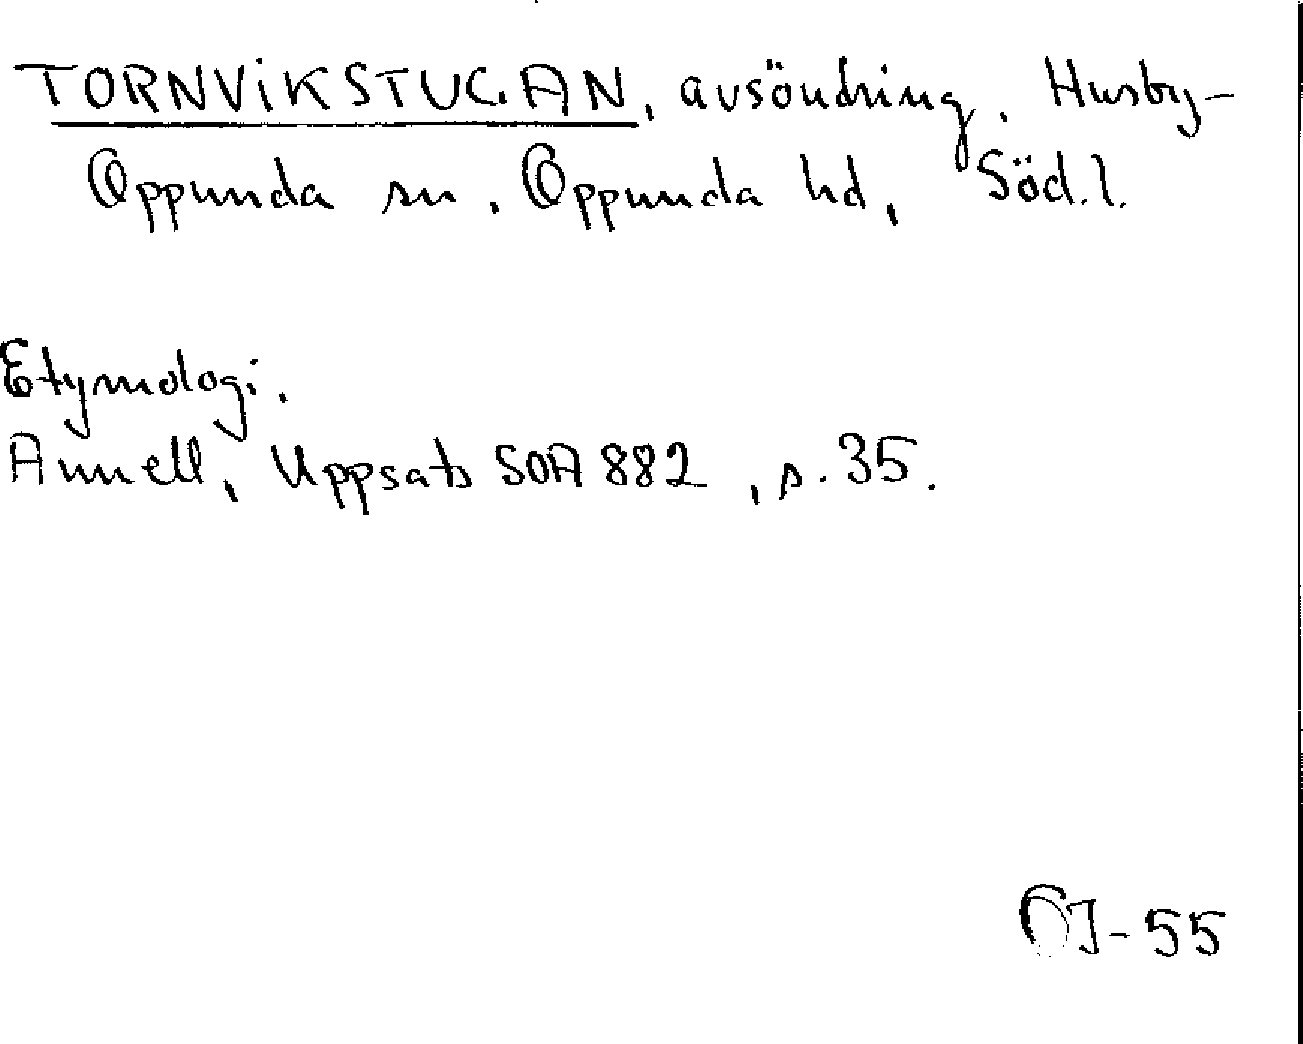 TORNVIKSTUGAN, avsöndring. Husby-
Oppunda sn. Oppunda hd, Söd.l.
Etymologi.
Annell, Uppsats SOA 882, s. 35.
OJ-55